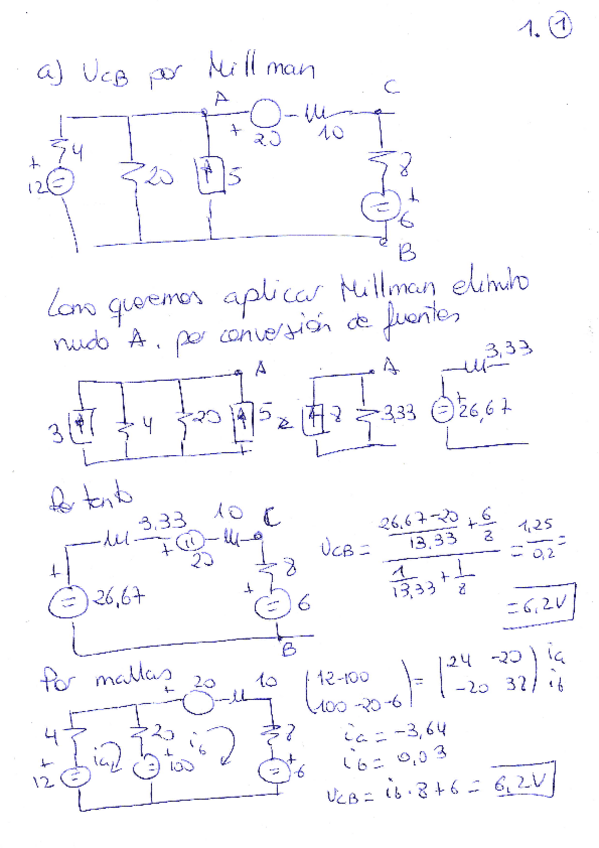 1. ①
a) UCB por Millman
A
C
+
20
10
4
+
12
20
5
8
+
6
B
Como queremos aplicar Millman elimino
nudo A, por conversión de fuentes
A
3
4
20
5
A
8
3,33
3,33
+
26,67
Por tanto
3,33
10
C
+
20
+
26,67
8
+
6
B
UCB = (26,67-20)/13,33 + 6/8 / 1/13,33 + 1/8 = 1,25/0,2 =
= 6,2V
Por mallas
+
20
10
4
+
12
ia
20
+
100
ib
8
+
6
(12-100
100-20-6) = (24 -20
-20 32) ia
ib
ia = -3,64
ib = 0,03
UCB = ib · 8 + 6 = 6,2V